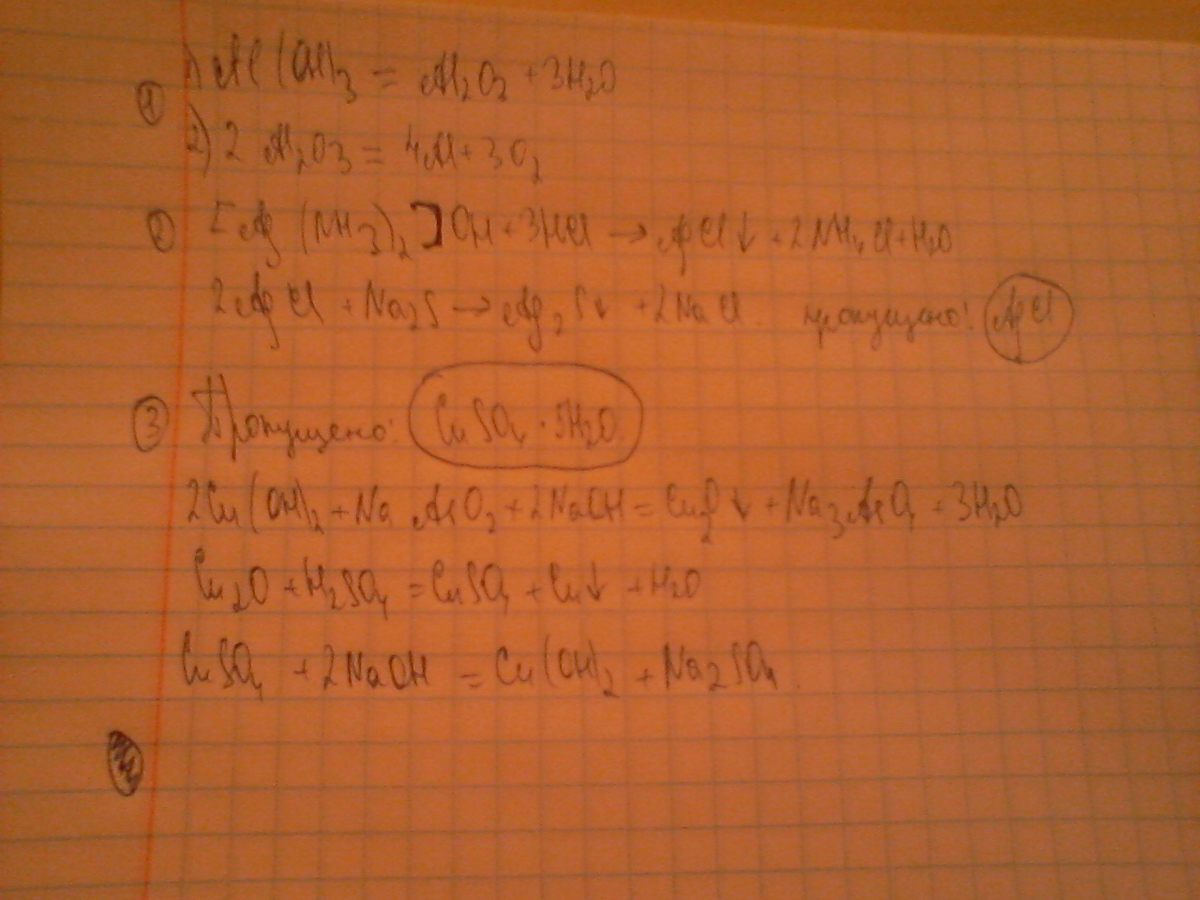 ① 1) Al(OH)₃ = Al₂O₃ + 3H₂O
2) 2Al₂O₃ = 4Al + 3O₂
② [Ag(NH₃)₂]OH + 3HCl → AgCl↓ + 2NH₄Cl + H₂O
2AgCl + Na₂S → Ag₂S↓ + 2NaCl. пропущено: AgCl
③ Пропущено: CuSO₄ · 5H₂O.
2Cu(OH)₂ + NaAsO₂ + 2NaOH = Cu₂O↓ + Na₃AsO₄ + 3H₂O
Cu₂O + H₂SO₄ = CuSO₄ + Cu↓ + H₂O
CuSO₄ + 2NaOH = Cu(OH)₂ + Na₂SO₄.